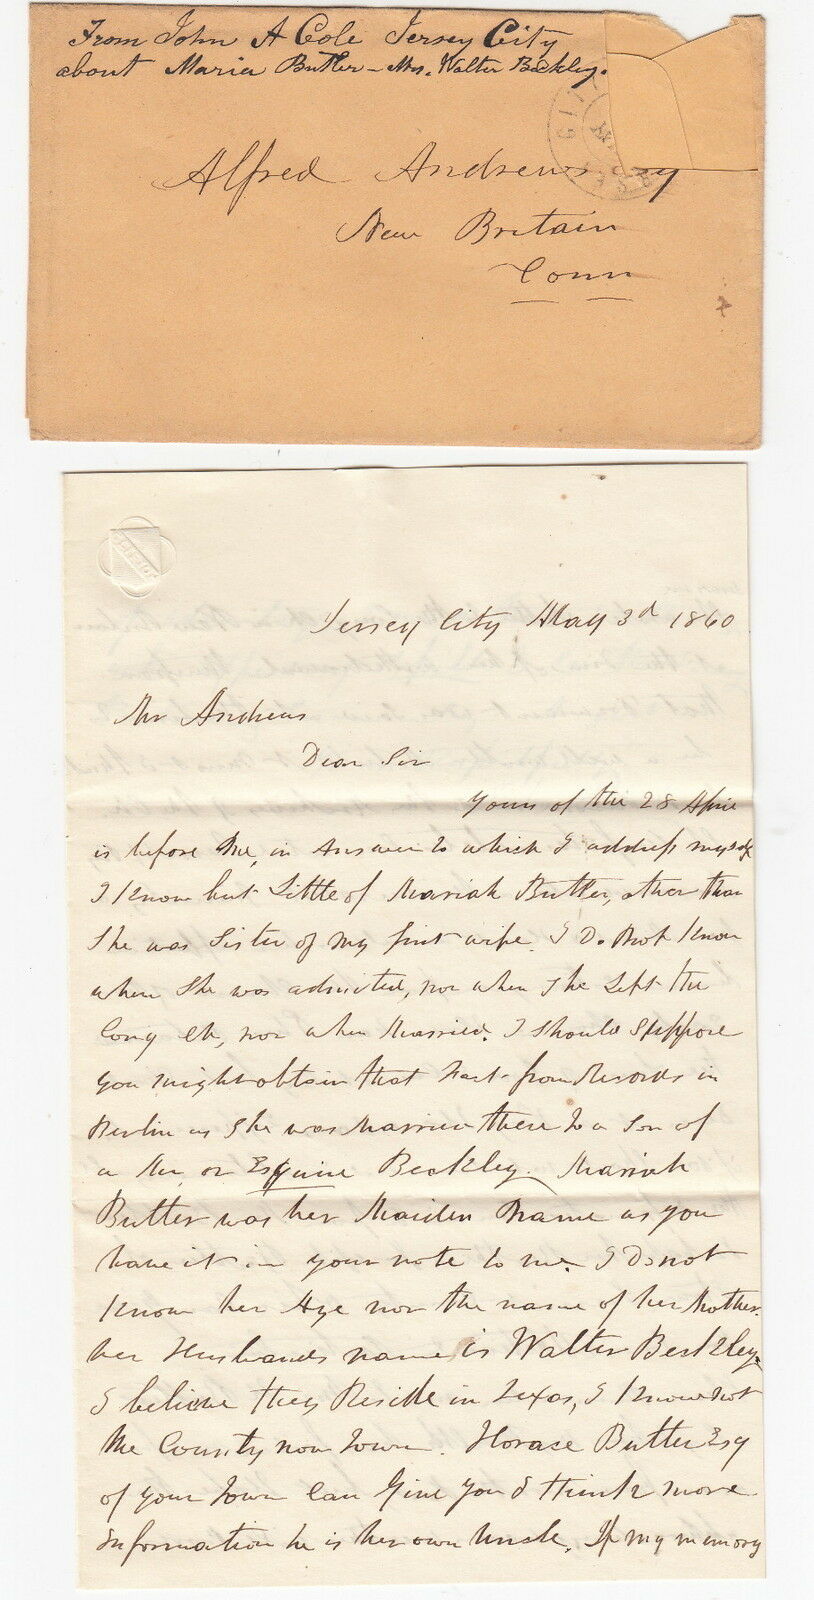 From John A Cole Jersey City
about Maria Butler – Mrs. Walter Beckley.
Alfred Andrews Esq
New Britain
Conn
Jersey City May 3d 1860
Mr Andrews
Dear Sir
Yours of the 28 April
is before Me, in Answer to which I address myself
I Know but Little of Mariah Butler, other than
She was Sister of my first wife. I Do Not Know
when She was admitted, nor when She Left the
Cong Ch, nor when Married. I should Suppose
you might obtain that Fact from Records in
Berlin as She was Married there to a Son of
a Mr or Esquire Beckley. Mariah
Butler was her Maiden Name as you
have it in your note to me. I Do not
Know her Age nor the name of her Mother.
her Husbands name is Walter Beckley.
I believe they Reside in Texas, I Know not
the County nor Town. Horace Butler Esq
of your Town Can Give you I think more
Information he is her own Uncle. If my memory